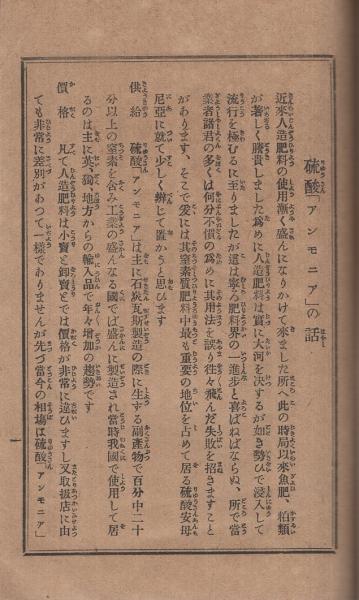 硫酸「アンモニア」の話
近來人造肥料の使用漸く盛んになりかけて來ました所へ此の時局以來魚肥、粕類
が著しく騰貴しました爲めに人造肥料は實に大河を決するが如き勢ひで浸入して
流行を極むるに至りましたが這は寧ろ肥料界の一進步と喜ばねばならぬ、所で當
業者諸君の多くは何分不慣の爲めに其用法を誤り往々飛んだ失敗を招きますこと
があります、そこで爰には其窒素質肥料中最も重要の地位を占めて居る硫酸安母
尼亞に就て少しく辨じて置かうと思ひます
供給 硫酸「アンモニア」は主に石炭瓦斯製造の際に生する副產物で百分中二十
分以上の窒素を含み工業の盛んなる國では盛んに製造され當時我國で使用して居
るのは主に英、獨、地方からの輸入品で年々增加の趨勢です
價格 凡て人造肥料は小賣と卸賣とでは價格が非常に違ひますし又取扱店に由
ても非常に差別があつて一樣でありませんが先づ當今の相塲は硫酸「アンモニア」
一